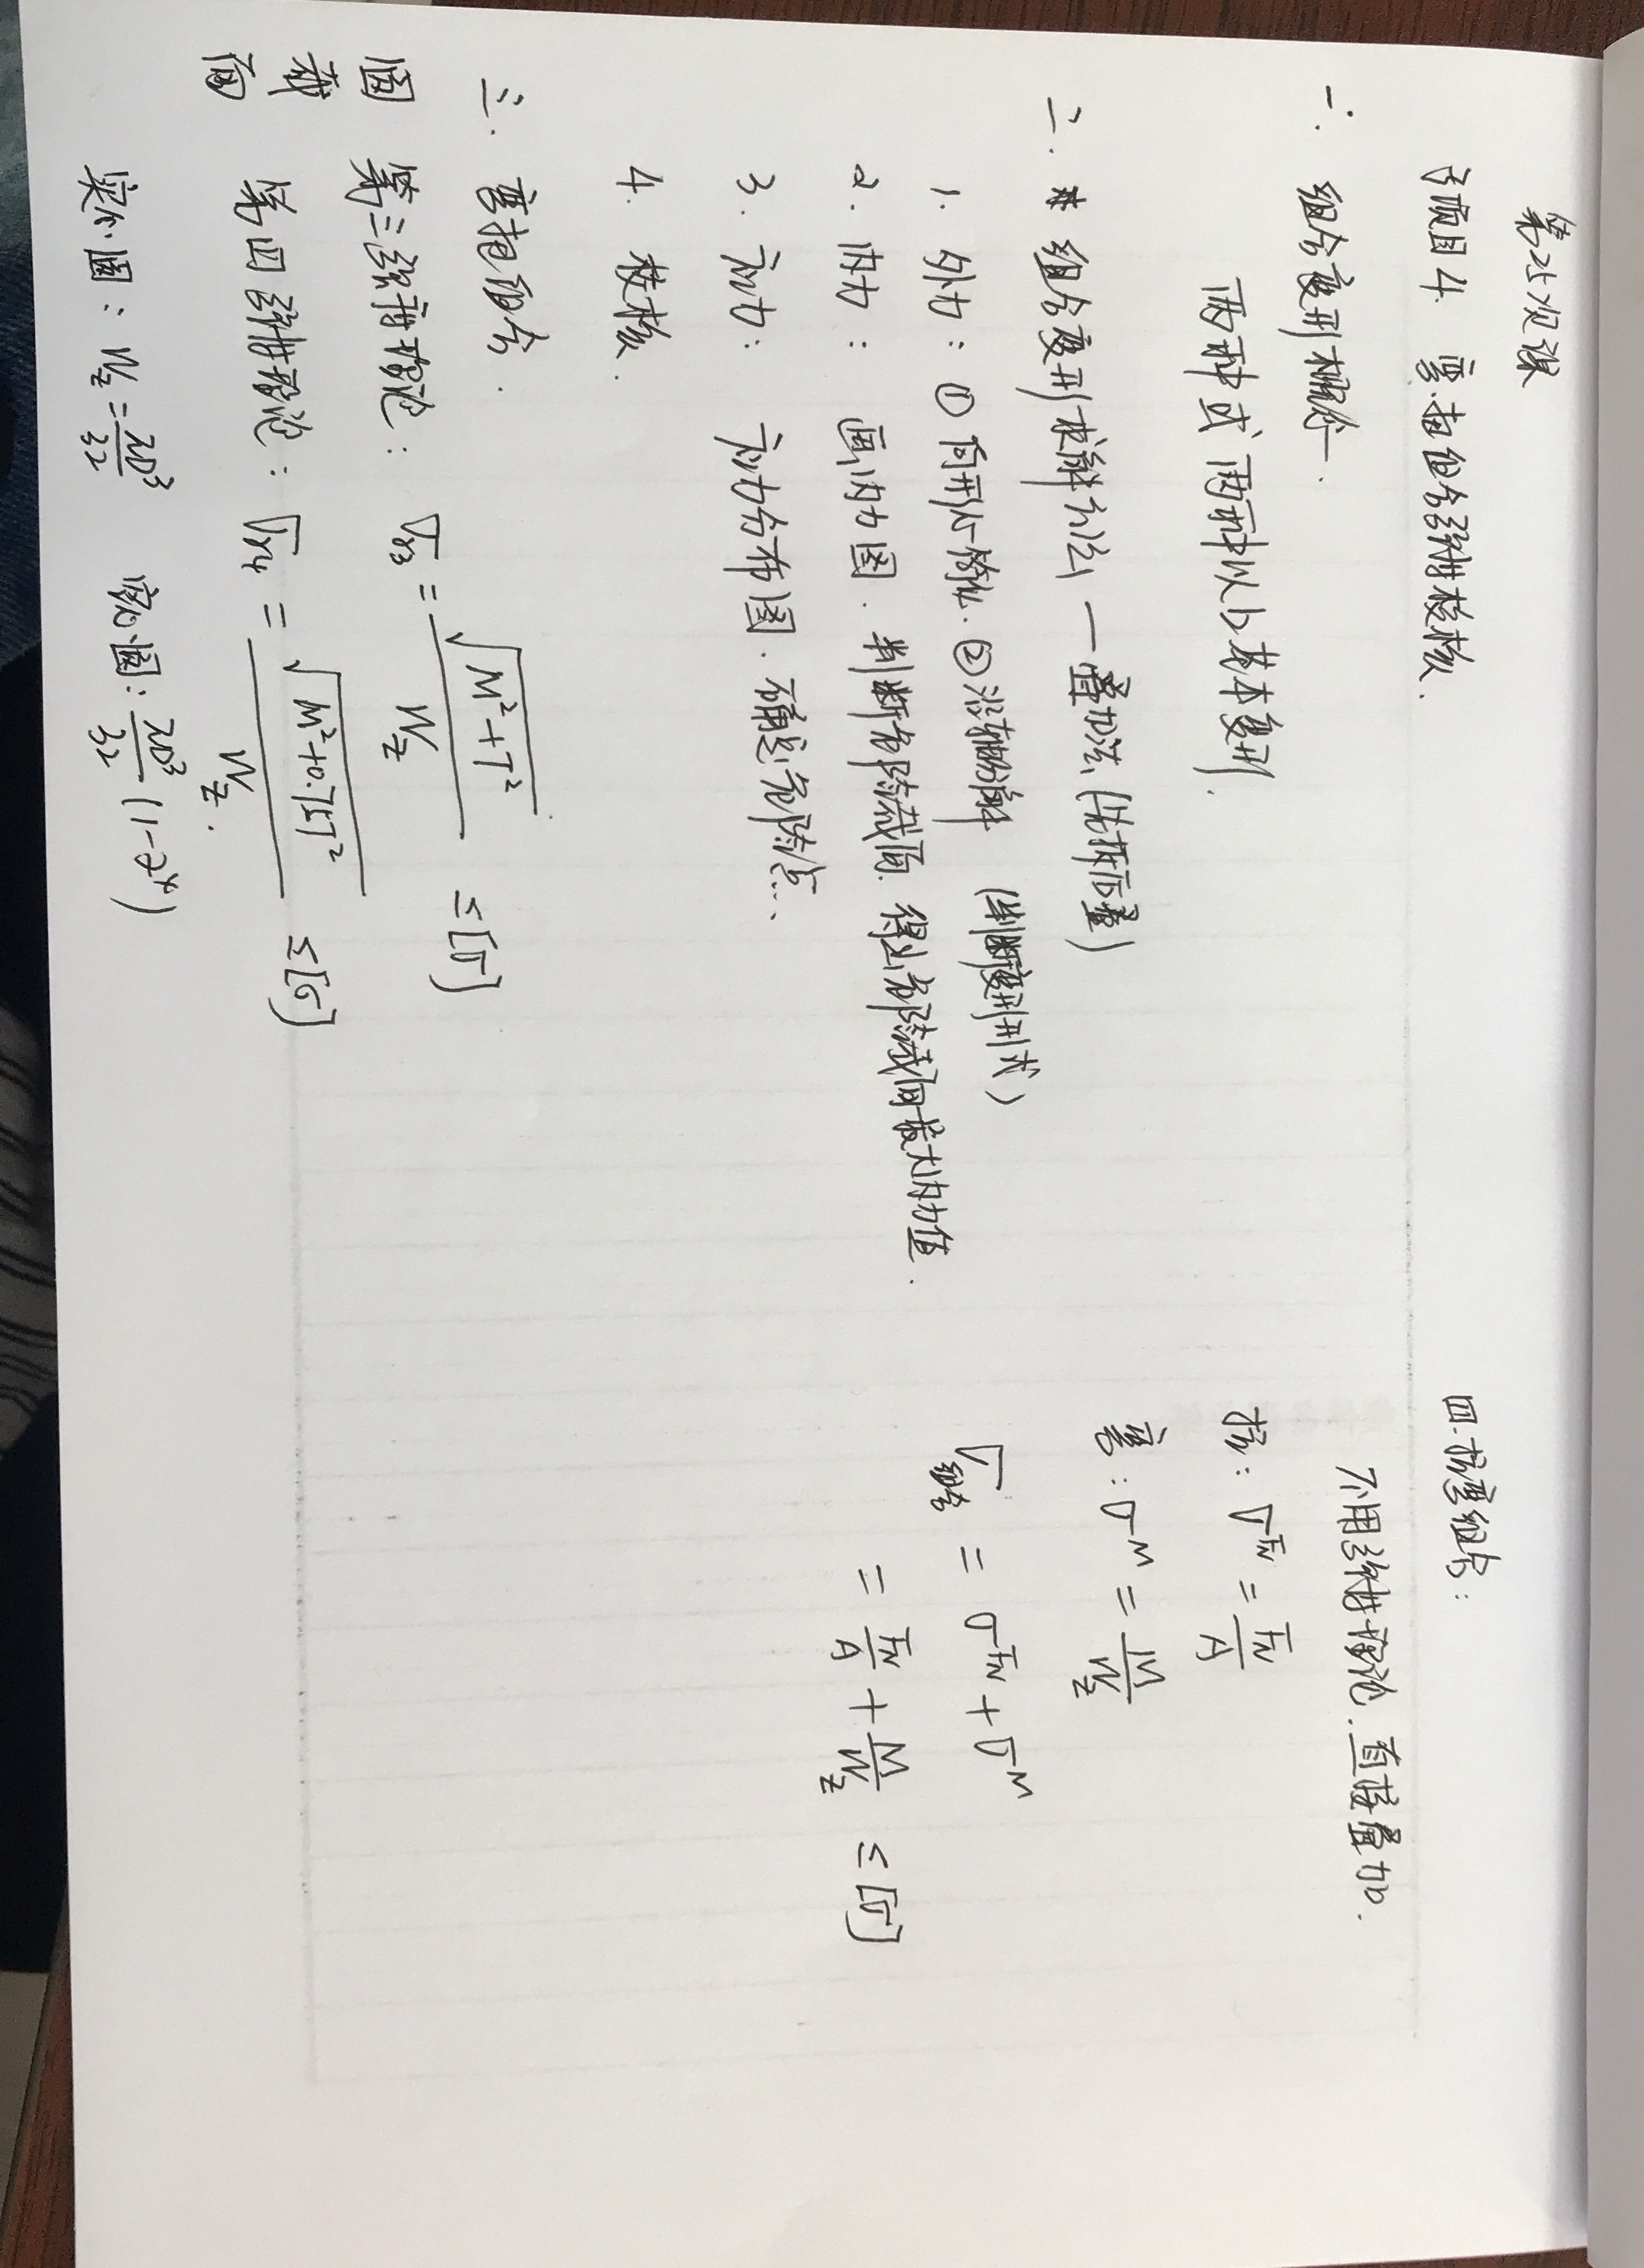 第25次课
子项目4 弯扭组合强度校核.
一. 组合变形概念.
两种或两种以上基本变形.
二. 组合变形求解方法 — 叠加法 (先拆后叠)
1. 外力: ① 向形心简化. ② 沿轴分解 (判断变形形式)
2. 内力: 画内力图. 判断危险截面. 得出危险截面最大内力值.
3. 应力: 应力分布图. 确定危险点...
4. 校核.
三. 弯扭组合.
圆截面
第三强度理论: σr3 = √(M²+T²) / Wz ≤ [σ]
第四强度理论: σr4 = √(M²+0.75T²) / Wz. ≤ [σ]
实心圆: Wz = πD³/32 空心圆: πD³/32 (1-α⁴)
四. 拉弯组合:
不用强度理论. 直接叠加.
拉: σ^FN = FN/A
弯: σ^M = M/Wz
σ组合 = σ^FN + σ^M
= FN/A + M/Wz ≤ [σ]